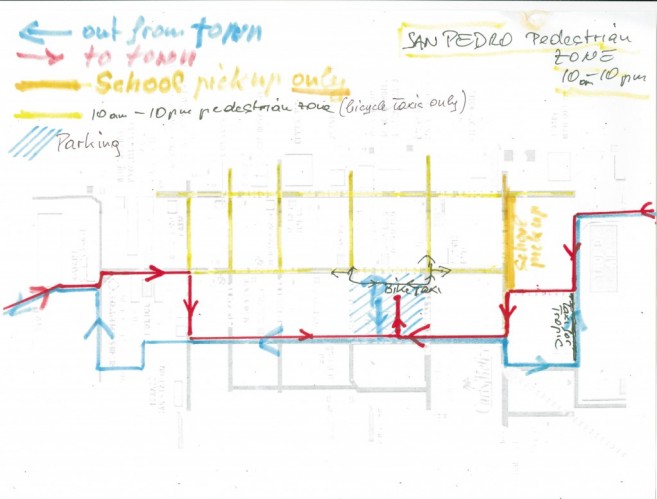 out from town
to town
School pickup only
10am - 10pm pedestrian zone (bicycle taxis only)
Parking
SAN PEDRO Pedestrian
ZONE
10am-10pm
School
pickup
Bike Taxi
Tropic